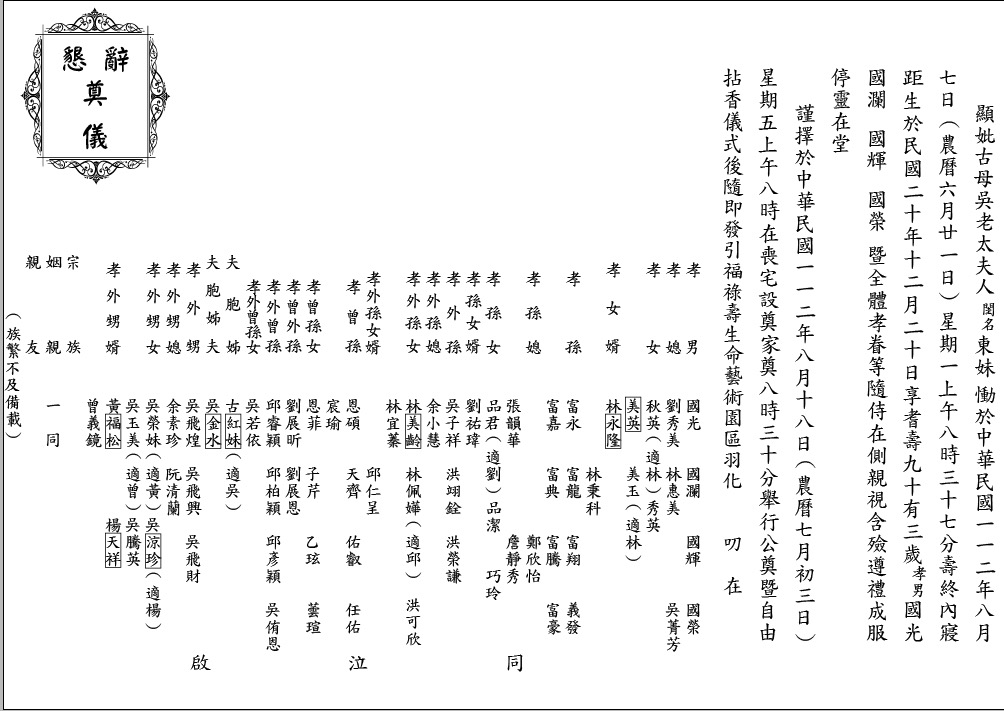 顯妣古母吳老太夫人閨名東妹 慟於中華民國一一二年八月
七日（農曆六月廿一日）星期一上午八時三十七分壽終內寢
距生於民國二十年十二月二十日享耆壽九十有三歲孝男國光
國瀾 國輝 國榮 暨全體孝眷等隨侍在側親視含殮遵禮成服
停靈在堂
謹擇於中華民國一一二年八月十八日（農曆七月初三日）
星期五上午八時在喪宅設奠家奠八時三十分舉行公奠暨自由
拈香儀式後隨即發引福祿壽生命藝術園區羽化 叨 在
孝男 國光 國瀾 國輝 國榮
孝媳 劉秀美 林惠美 吳菁芳
孝女 秋英（適林）秀英
美英 美玉（適林）
孝女婿 林永隆
林秉科
孝孫 富永 富龍 富翔 義發
富嘉 富典 富騰 富豪
孝孫媳 鄭欣怡
張韻華 詹靜秀
孝孫女 品君（適劉）品潔 巧玲
孝孫女婿 劉祐瑋
孝外孫 吳子祥 洪翊銓 洪榮謙
孝外孫媳 余小慧
孝外孫女 林美齡 林佩嬅（適邱） 洪可欣
林宜蓁
孝外孫女婿 邱仁呈
孝曾孫 恩碩 天齊 佑叡 任佑
宸瑜
孝曾孫女 恩菲 子芹 乙玹 蕓瑄
孝曾外孫 劉展昕 劉展恩
孝外曾孫 邱睿穎 邱柏穎 邱彥穎 吳侑恩
孝外曾孫女 吳若依
夫胞姊 古紅妹（適吳）
夫胞姊夫 吳金水
孝外甥 吳飛煌 吳飛興 吳飛財
孝外甥媳 余素珍 阮清蘭
孝外甥女 吳榮妹（適黃）吳涼珍（適楊）
吳玉美（適曾）吳騰英
孝外甥婿 黃福松 楊天祥
曾義鏡
宗族
姻親 一同
親友
（族繁不及備載）
同 泣 啟
懇辭
奠
儀